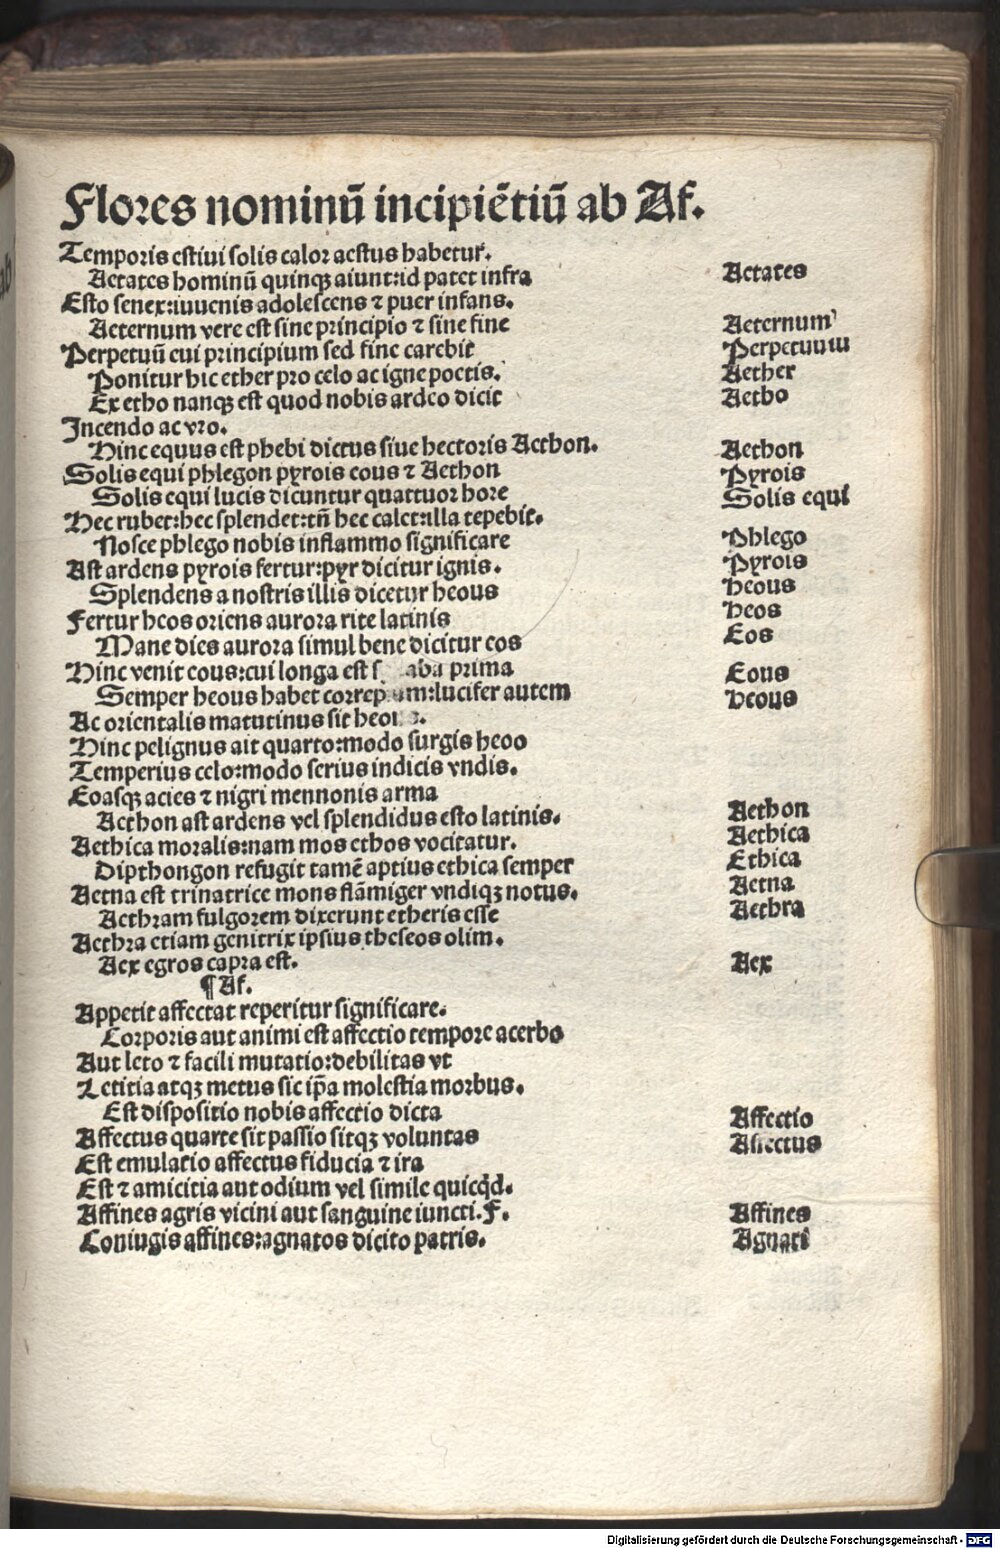 Flores nominū incipiētiū ab Af.
Temporis estiui solis calor aestus habetur.
Aetates hominū quinqꝫ aiunt:id patet infra Aetates
Esto senex:iuuenis adolescens ⁊ puer infans.
Aeternum vere est sine principio ⁊ sine fine Aeternum
Perpetuū cui principium sed fine carebit Perpetuum
Ponitur hic ether pro celo ac igne poetis. Aether
Ex etho nanqꝫ est quod nobis ardeo dicit Aetho
Incendo ac vro.
Hinc equus est phebi dictus siue hectoris Aethon. Aethon
Solis equi phlegon pyrois eous ⁊ Aethon Pyrois
Solis equi lucis dicuntur quattuor hore Solis equi
Hec rubet:hec splendet:tñ hec calet:illa tepebit.
Nosce phlego nobis inflammo significare Phlego
Ast ardens pyrois fertur:pyr dicitur ignis. Pyrois
Splendens a nostris illis dicetur heous heous
Fertur heos oriens aurora rite latinis heos
Mane dies aurora simul bene dicitur eos Eos
Hinc venit eous:cui longa est s aba prima Eous
Semper heous habet correp am:lucifer autem heous
Ac orientalis matutinus sit heo
Hinc pelignus ait quarto:modo surgis heoo
Temperius celo:modo serius indicis vndis.
Eoasqꝫ acies ⁊ nigri mennonis arma
Aethon ast ardens vel splendidus esto latinis. Aethon
Aethica moralis:nam mos ethos vocitatur. Aethica
Dipthongon refugit tamē aptius ethica semper Ethica
Aetna est trinatrice mons flāmiger vndiqꝫ notus. Aetna
Aethram fulgorem dixerunt etheris esse Aethra
Aethra etiam genitrix ipsius theseos olim.
Aex egros capra est. Aex
¶Af.
Appetit affectat reperitur significare.
Corporis aut animi est affectio tempore acerbo
Aut leto ⁊ facili mutatio:debilitas vt
Letitia atqꝫ metus sic ip̄a molestia morbus.
Est dispositio nobis affectio dicta Affectio
Affectus quarte sit passio sitqꝫ voluntas Affectus
Est emulatio affectus fiducia ⁊ ira
Est ⁊ amicitia aut odium vel simile quicq̇d.
Affines agris vicini aut sanguine iuncti.F. Affines
Coniugis affines:agnatos dicito patris. Agnati
Digitalisierung gefördert durch die Deutsche Forschungsgemeinschaft - DFG